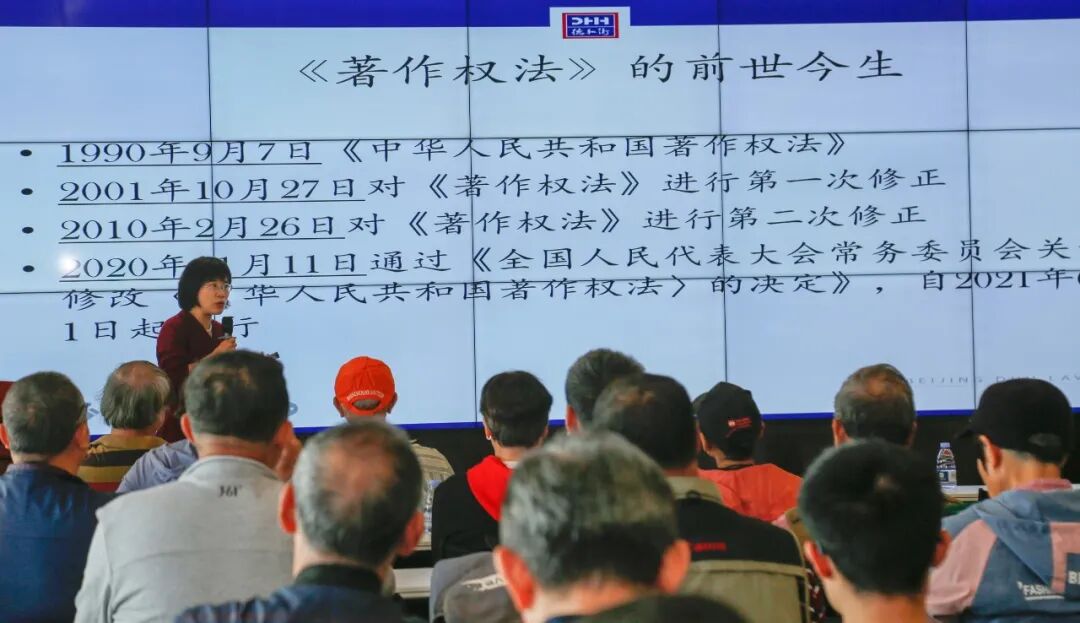 DHH
德和衡
《著作权法》的前世今生
• 1990年9月7日《中华人民共和国著作权法》
• 2001年10月27日对《著作权法》进行第一次修正
• 2010年2月26日对《著作权法》进行第二次修正
• 2020年 1月11日通过《全国人民代表大会常务委员会关
修改 华人民共和国著作权法〉的决定》，自2021年
1日起 行
BEIJING DHH LAW
361°